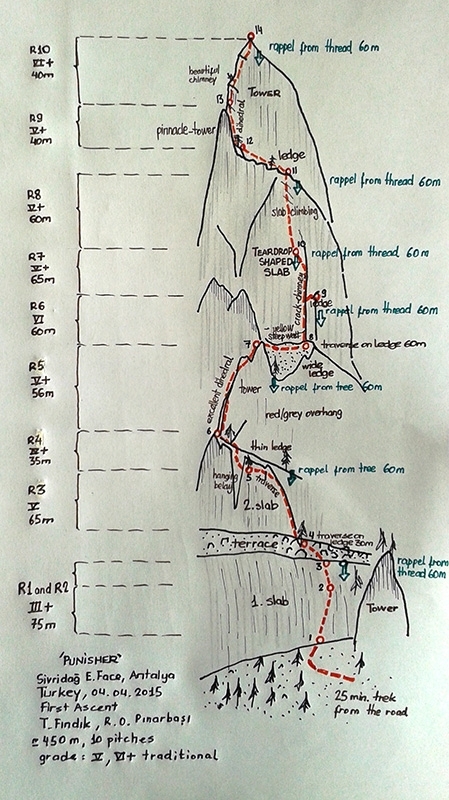 14
rappel from thread 60m
R10
VI+
40m
beautiful
chimney
TOWER
13
R9
V+
40m
dihedral
pinnacle-tower
12
ledge
11
rappel from thread 60m
R8
V+
60m
slab climbing
10
rappel from thread 60m
TEARDROP
SHAPED
SLAB
R7
V+
65m
crack-chimney
9
ledge
rappel from thread 60m
R6
VI
60m
yellow
steep wall
7
8
traverse on ledge 60m
wide
ledge
R5
V+
56m
excellent dihedral
tower
rappel from tree 60m
red/grey overhang
6
R4
35m
thin ledge
5
traverse
rappel from tree 60m
hanging
belay
R3
V
65m
2.slab
4
traverse on
ledge 30m
terrace
3
rappel from
thread 60m
R1 and R2
III+
75m
2
1. slab
Tower
1
25 min. trek
from the road
'PUNISHER'
Sivridağ E. Face, Antalya
Turkey, 04.04.2015
First Ascent
T. Fındık, R.O. Pınarbaşı
≃450m, 10 pitches
grade: V, VI+ traditional